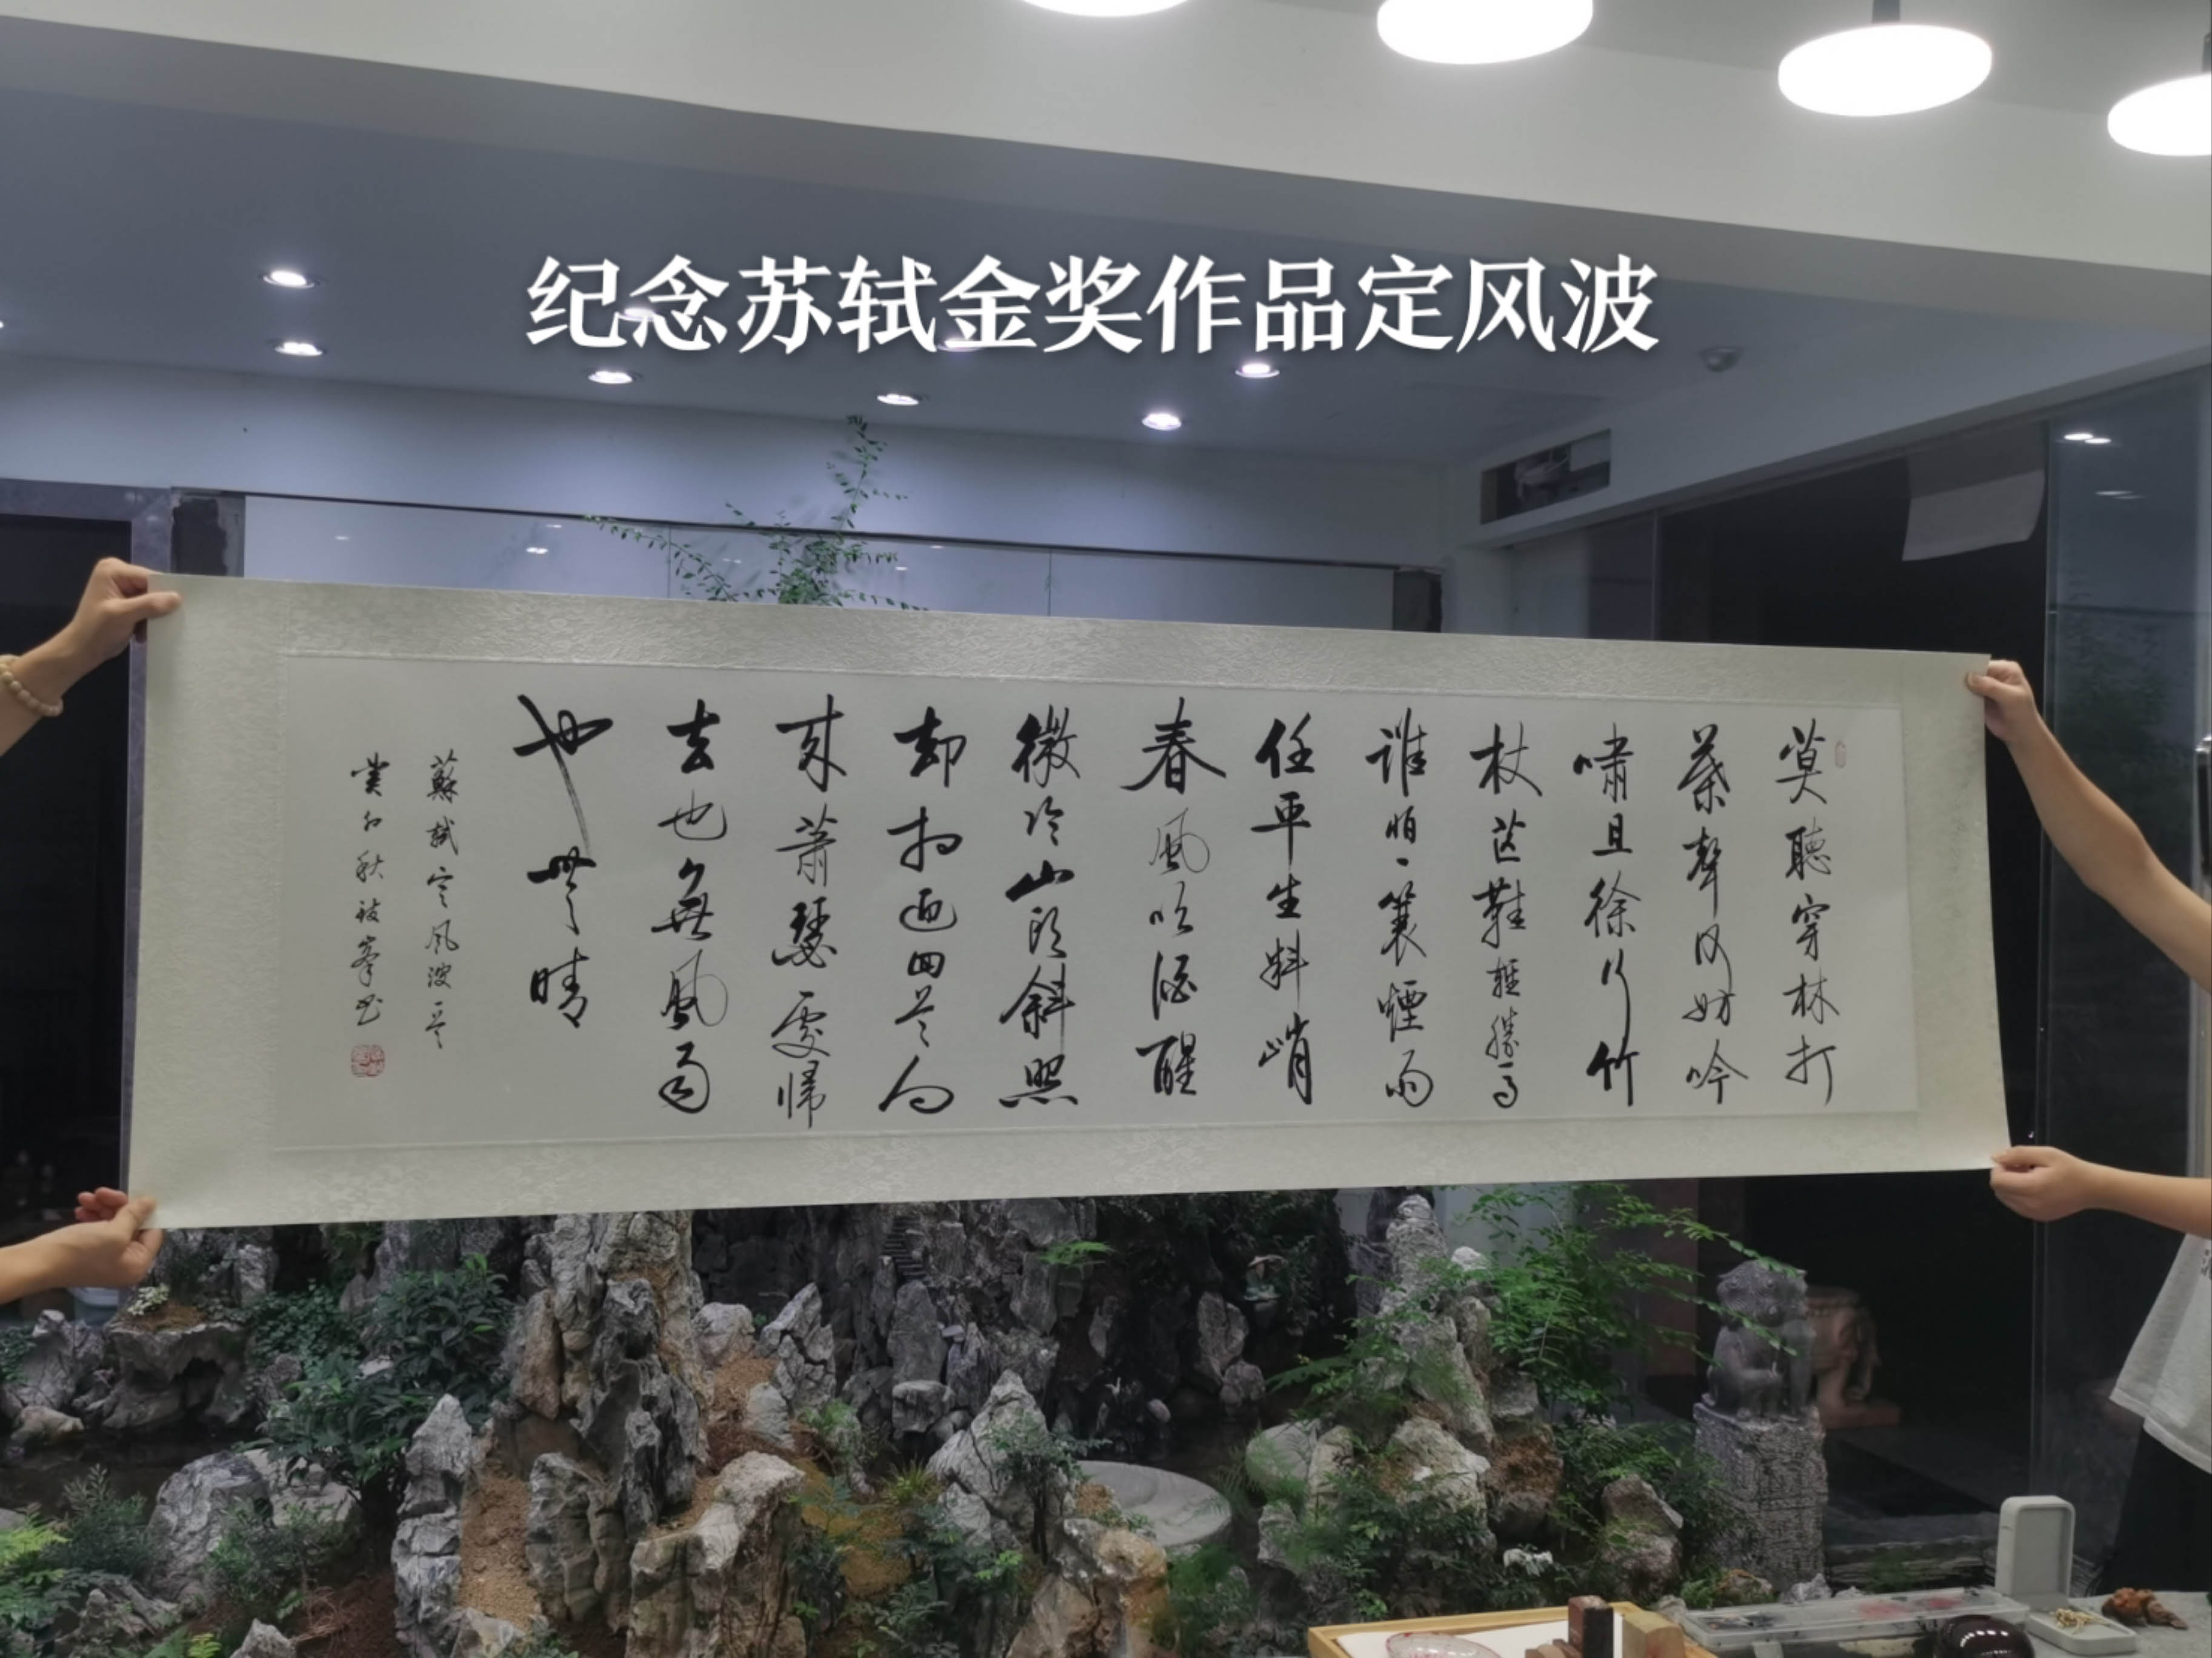 纪念苏轼金奖作品定风波
莫聽穿林打
葉聲何妨吟
嘯且徐行竹
杖芒鞋輕勝馬
誰怕一蓑煙雨
任平生料峭
春風吹酒醒
微冷山頭斜照
却相迎回首向
來蕭瑟處歸
去也無風雨
也無晴
蘇軾定風波一首
癸卯秋峯書